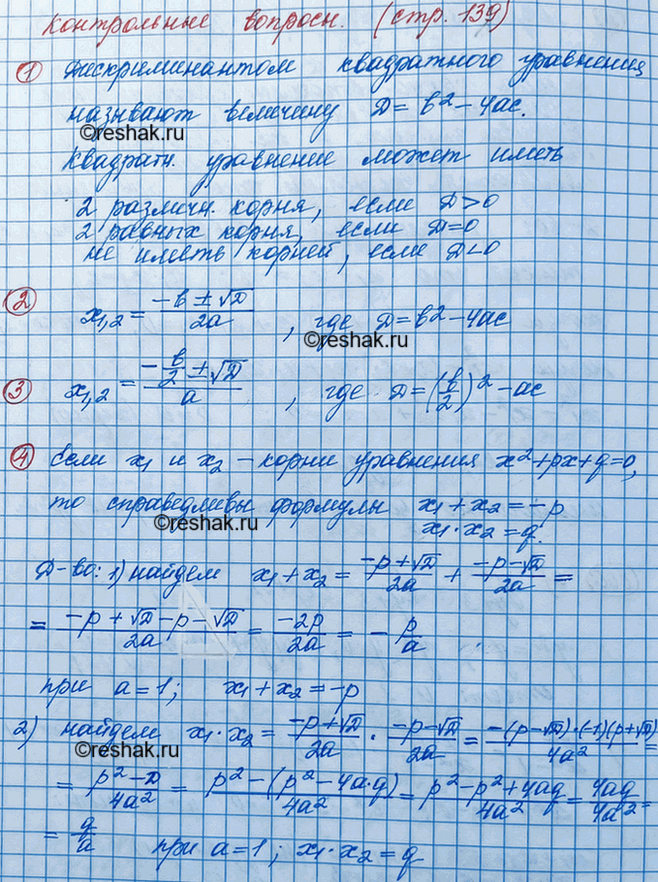 Контрольные вопросы. (стр. 139)
① Дискриминантом квадратного уравнения
называют величину D = b² - 4ac.
©reshak.ru
Квадратн. уравнение может иметь
2 различн. корня, если D > 0
2 равных корня, если D = 0
не иметь корней, если D < 0
② x₁,₂ = (-b ± √D)/2a, где D = b² - 4ac
©reshak.ru
③ x₁,₂ = (-b/2 ± √D)/a, где D = (b/2)² - ac
④ Если x₁ и x₂ - корни уравнения x² + px + q = 0,
то справедливы формулы x₁ + x₂ = -p
©reshak.ru
x₁ · x₂ = q.
Д-во: 1) найдем x₁ + x₂ = (-p + √D)/2a + (-p - √D)/2a =
= (-p + √D - p - √D)/2a = -2p/2a = - p/a
при a = 1; x₁ + x₂ = -p
2) найдем x₁ · x₂ = (-p + √D)/2a · (-p - √D)/2a = (-(p - √D) · (-1)(p + √D))/4a² =
©reshak.ru
= (p² - D)/4a² = (p² - (p² - 4a·q))/4a² = (p² - p² + 4aq)/4a² = 4aq/4a² =
= q/a при a = 1; x₁ · x₂ = q